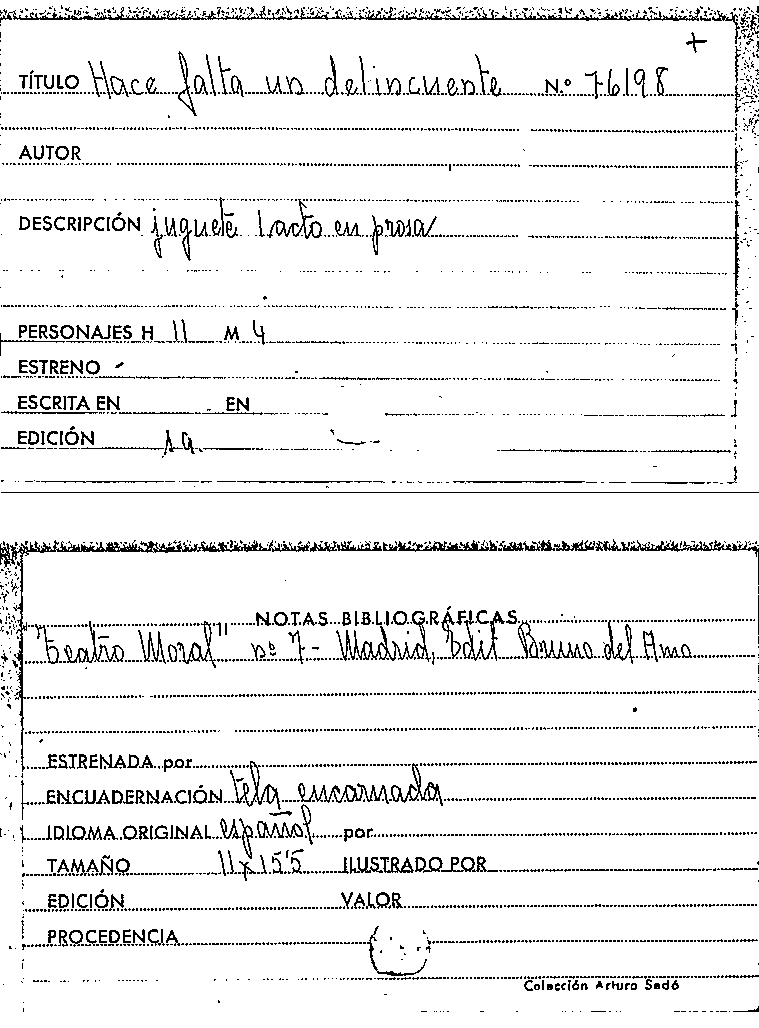 +
TÍTULO Hace falta un delincuente N.º 76198
AUTOR
DESCRIPCIÓN juguete 1 acto en prosa
PERSONAJES H 11 M 4
ESTRENO
ESCRITA EN EN
EDICIÓN s.a.
NOTAS BIBLIOGRÁFICAS
"Teatro Moral" nº 7 - Madrid, Edit Bruno del Amo
ESTRENADA por
ENCUADERNACIÓN tela encarnada
IDIOMA ORIGINAL español por
TAMAÑO 11 x 15'5 ILUSTRADO POR
EDICIÓN VALOR
PROCEDENCIA
Colección Arturo Sedó